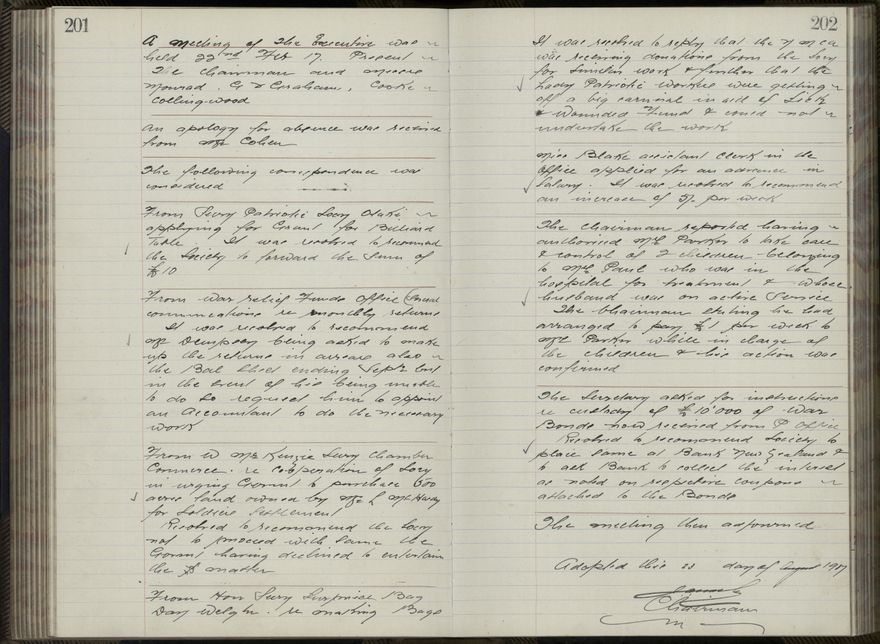 201
A meeting of the Executive was
held 22nd Feb 17. Present
The chairman and Messrs
Monrad. G. Graham, Cooke
Collingwood
An apology for absence was received
from Mr Cohen
The following correspondence was
considered
From Secry Patriotic Socy Otaki
applying for Grant for Billiard
Table It was resolved to recommend
the Society to forward the sum of
£10
From War Relief Funds Office (
communications re monthly returns
It was resolved to recommend
Mr Dempsey being asked to make
up the returns in arrears also
the Bal Sheet ending Septr last
in the event of his being unable
to do so request him to appoint
an Accountant to do the necessary
work
From W McKenzie Secry Chamber
Commerce. re Cooperation of Socy
in urging Govmt to purchase 600
acres land owned by Mr L McHardy
for Soldiers Settlement
Resolved to recommend the Socy
not to proceed with same the
Govmt having declined to entertain
the matter
From Hon Secry Surprise Bag
Day Welgtn. re making Bags
202
It was resolved to reply that the Y M C A
was receiving donations from the Socy
for similar work & further that the
Lady Patriotic Workers were getting
off a big carnival in aid of Sick
& Wounded Fund & could not
undertake the work
Miss Blake assistant clerk in the
office applied for an advance in
Salary. It was resolved to recommend
an increase of 5/- per week
The chairman reported having
authorised Mrs Parker to take care
& control of 2 children belonging
to Mrs Paul who was in the
hospital for treatment & whose
husband was on active service
The Chairman stating he had
arranged to pay £1 per week to
Mrs Parker while in charge of
the children & his action was
confirmed
The Secretary asked for instructions
re custody of £10'000 of War
Bonds now received from P Office
Resolved to recommend Society to
place same at Bank New Zealand &
to ask Bank to collect the interest
as noted on respective coupons
attached to the Bonds
The meeting then adjourned
Adopted this 22 day of August 1917
Chairman